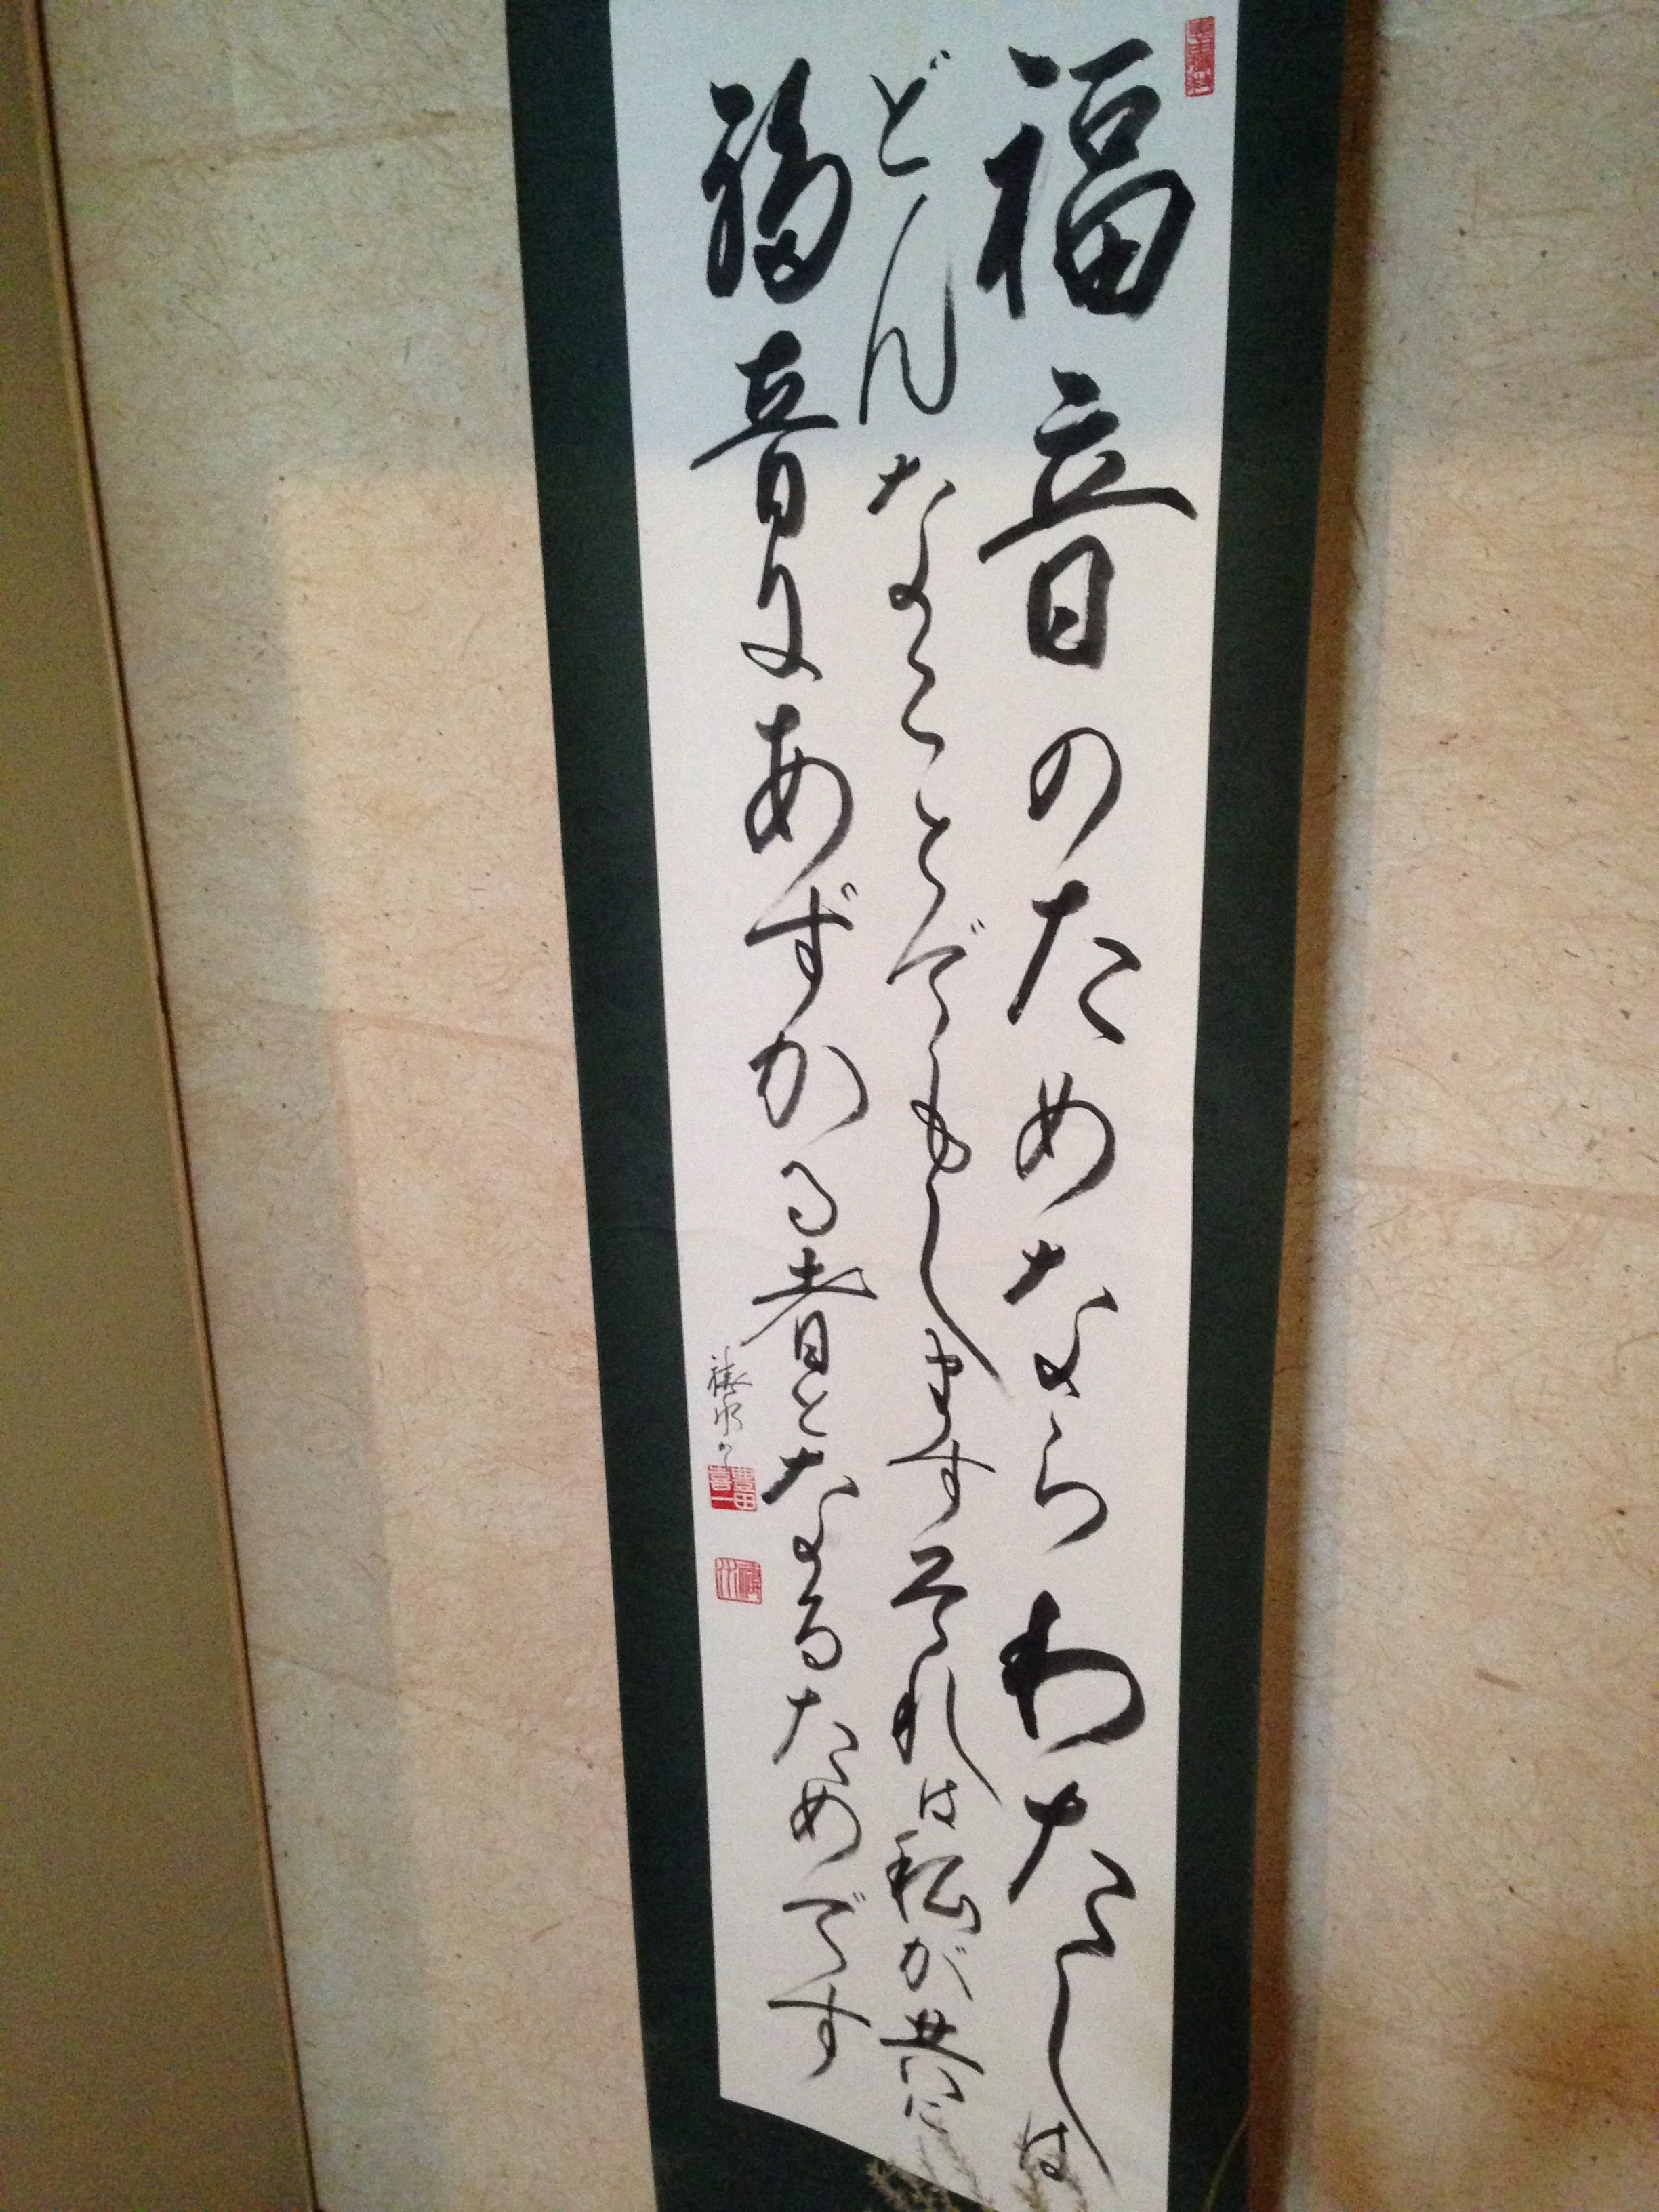 福音のためならわたしは
どんなことでもしますそれは私が共に
福音にあずかる者となるためです
豊田喜一